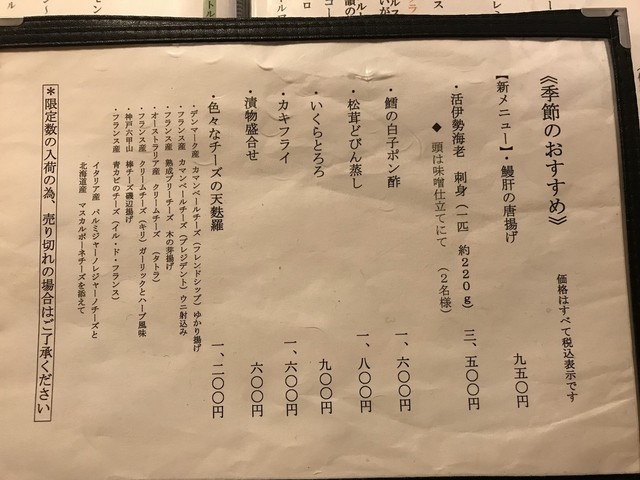 《季節のおすすめ》
価格はすべて税込表示です
【新メニュー】・鰻肝の唐揚げ 九五〇円
・活伊勢海老 刺身（一匹 約２２０ｇ） 三、五〇〇円
◆ 頭は味噌仕立てにて （２名様）
・鱈の白子ポン酢 一、六〇〇円
・松茸どびん蒸し 一、八〇〇円
・いくらとろろ 九〇〇円
・カキフライ 一、六〇〇円
・漬物盛合せ 六〇〇円
・色々なチーズの天麩羅 一、二〇〇円
・デンマーク産 カマンベールチーズ（フレンドシップ）ゆかり揚げ
・フランス産 カマンベールチーズ（プレジデント）ウニ射込み
・フランス産 熟成ブリーチーズ 木の芽揚げ
・オーストラリア産 クリームチーズ （タトラ）
・フランス産 クリームチーズ（キリ）ガーリックとハーブ風味
・神戸六甲山 棒チーズ磯辺揚げ
・フランス産 青カビのチーズ（イル・ド・フランス）
イタリア産 パルミジャーノレジャーノチーズと
北海道産 マスカルポーネチーズを添えて
＊限定数の入荷の為、売り切れの場合はご了承ください